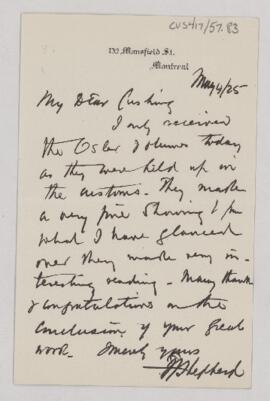 CUS417/57.83
152 Mansfield St.
Montreal
May 9/25
My Dear Cushing
I only received
the Osler volumes today
as they were held up in
the customs. They make
a very fine showing & from
what I have glanced
over they make very in-
teresting reading. Many thanks
& congratulations on the
conclusion of your great
work. Sincerely yours
FJ Shepherd